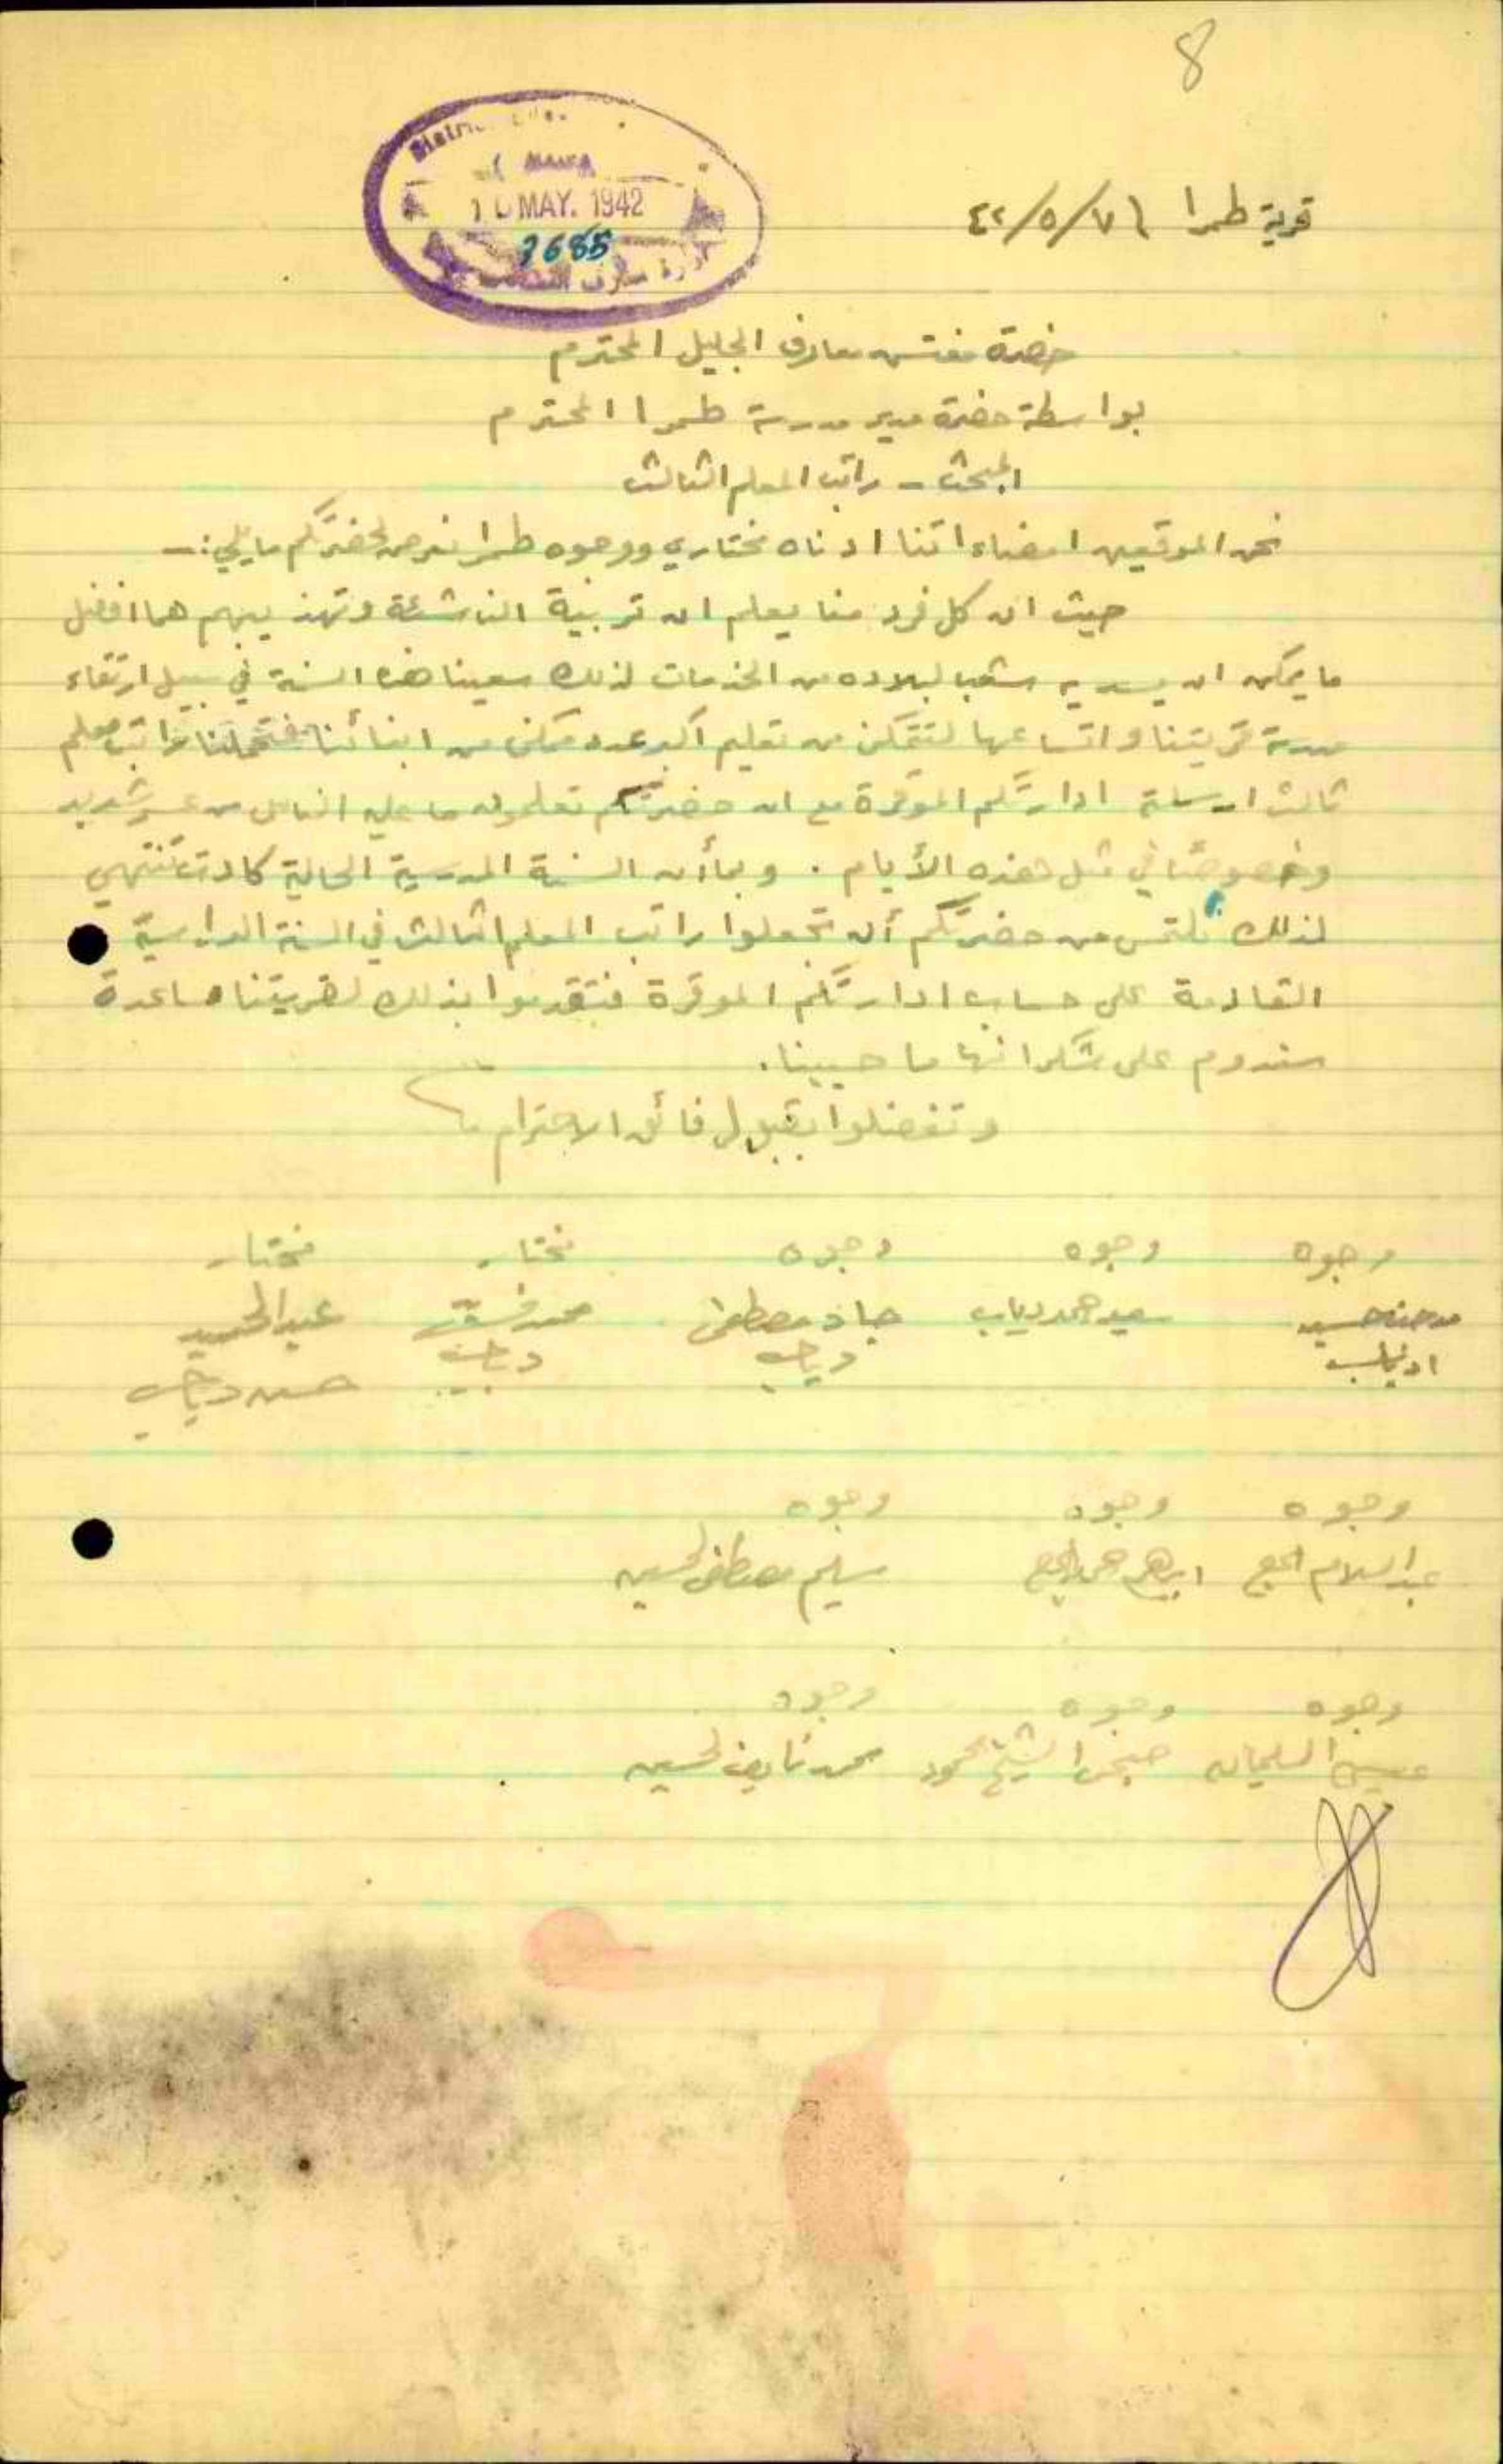 8
MAY. 1942
7685
قرية طمرا ٤٢/٥/٧
حضرة مفتش معارف الجليل المحترم
بواسطة حضرة مدير مدرسة طمرا المحترم
المبحث - راتب المعلم الثالث
نحن الموقعين امضاءاتنا ادناه مختاري ووجوه طمرا نعرض لحضرتكم ما يلي :-
حيث ان كل فرد منا يعلم ان تربية الناشئة وتهذيبهم هما افضل
ما يمكن ان يسديه شعب لبلاده من الخدمات لذلك سعينا هذه السنة في سبيل ارتقاء
مدرسة قريتنا واتساعها لتتمكن من تعليم اكبر عدد ممكن من ابنائنا فتحملنا راتب معلم
ثالث ارسلته ادارتكم الموقرة مع ان حضرتكم تعلمون ما عليه الناس من عسر شديد
وخصوصًا في مثل هذه الأيام . وبما أن السنة المدرسية الحالية كادت تنتهي
لذلك نلتمس من حضرتكم أن تجعلوا راتب المعلم الثالث في السنة الدراسية
القادمة على حساب ادارتكم الموقرة فتقدموا بذلك لقريتنا مساعدة
سندوم على شكرانها ما حيينا .
وتفضلوا بقبول فائق الاحترام
وجوه وجوه وجوه مختار مختار
حسين سعيد حمد دياب جاد مصطفى محمد عبد الحميد
دياب دياب حسن دياب
وجوه وجوه وجوه
عبد السلام الحج ابراهيم سليم مصطفى الحسين
وجوه وجوه وجوه
السليمان الشيخ محمود محمد نايف الحسين